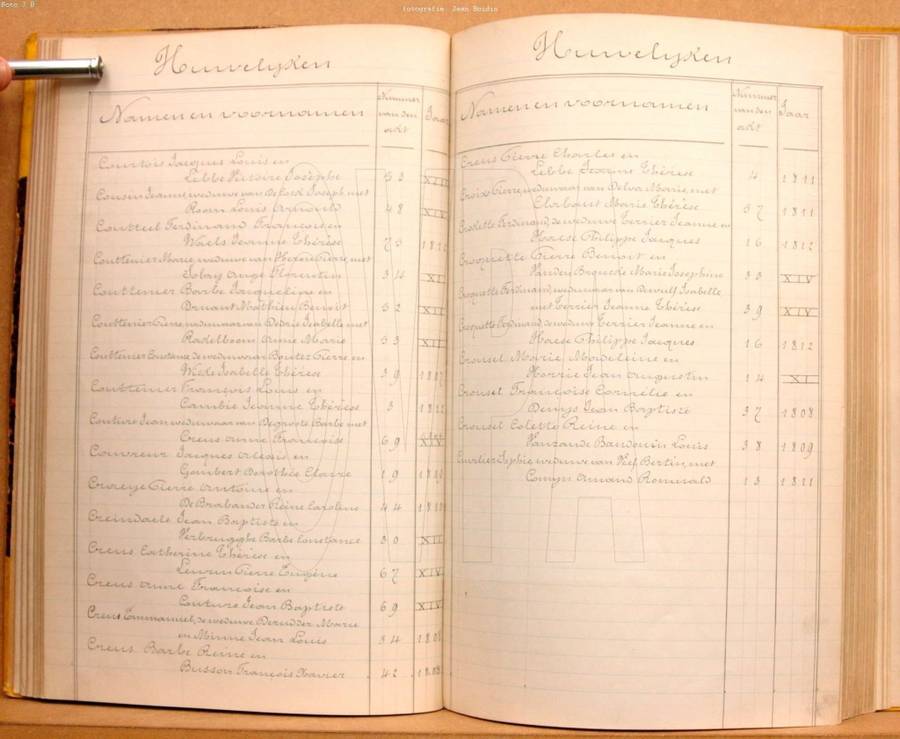 Foto J B
fotografie Jean Boidin
Huwelyken
Namen en voornamen
Nummer van den acht
Jaar
Courtois Jacques Louis en
Libbe Victoire Josephe 53 XII
Cousin Jeanne, weduwe van Joseph, met
Louis 48 XIV
Ferdinand François en
Waels Jeanne Thérèse 73 1812
Couttenier Marie, weduwe van met
Ange Florentin 34 XI
Couttenier Barbe Jacqueline en
Druant Mathieu Benoit 52 XII
Couttenier Pierre, weduwnaar van Isabelle met
Radelboom Anne Marie 53 XII
Couttenier Constance, de weduwe van Pierre en
Isabelle Thérèse 39 1807
Couttenier François Louis en
Cambie Jeanne Thérèse 3
Couture Jean, weduwnaar van Degroote Barbe met
Creus Anne Françoise 69 XIV
Couvreur Jacques en
Gombert Dorothée Claire 19
Pierre Antoine en
De Brabander Reine Caroline 44
Creindaele Jean Baptiste en
Verbrugghe Barbe Constance 30 XII
Creus Catherine Thérèse en
Pierre Eugène 67 XIV
Creus Anne Françoise en
Couture Jean Baptiste 69 XIV
Creus Emmanuel, de weduwe Marie
en Minne Jean Louis 34
Creus Barbe Reine en
Busson François Xavier 42
Huwelyken
Namen en voornamen
Nummer van den acht
Jaar
Creus Pierre Charles en
Libbe Jeanne Thérèse 4 1811
Croix Pierre, weduwnaar van Marie, met
Marie Thérèse 57 1811
Ferdinand, de weduwe Terrier Jeanne en
Haese Philippe Jacques 16 1812
Croquette Pierre Benoit en
Marie Josephine 33 XIV
Croquette Ferdinand, weduwnaar van Isabelle
met Terrier Jeanne Thérèse 39 XIV
Croquette Ferdinand, de weduwe Terrier Jeanne en
Haese Philippe Jacques 16 1812
Crousel Marie Madeleine en
Jean Augustin 14 XI
Crousel Françoise Cornélie en
Denys Jean Baptiste 37 1808
Crousel Colette Reine en
Vanzande Baudouin Louis 38 1809
Sophie weduwe van Bertin, met
Comyn Amand Romuald 13 1811